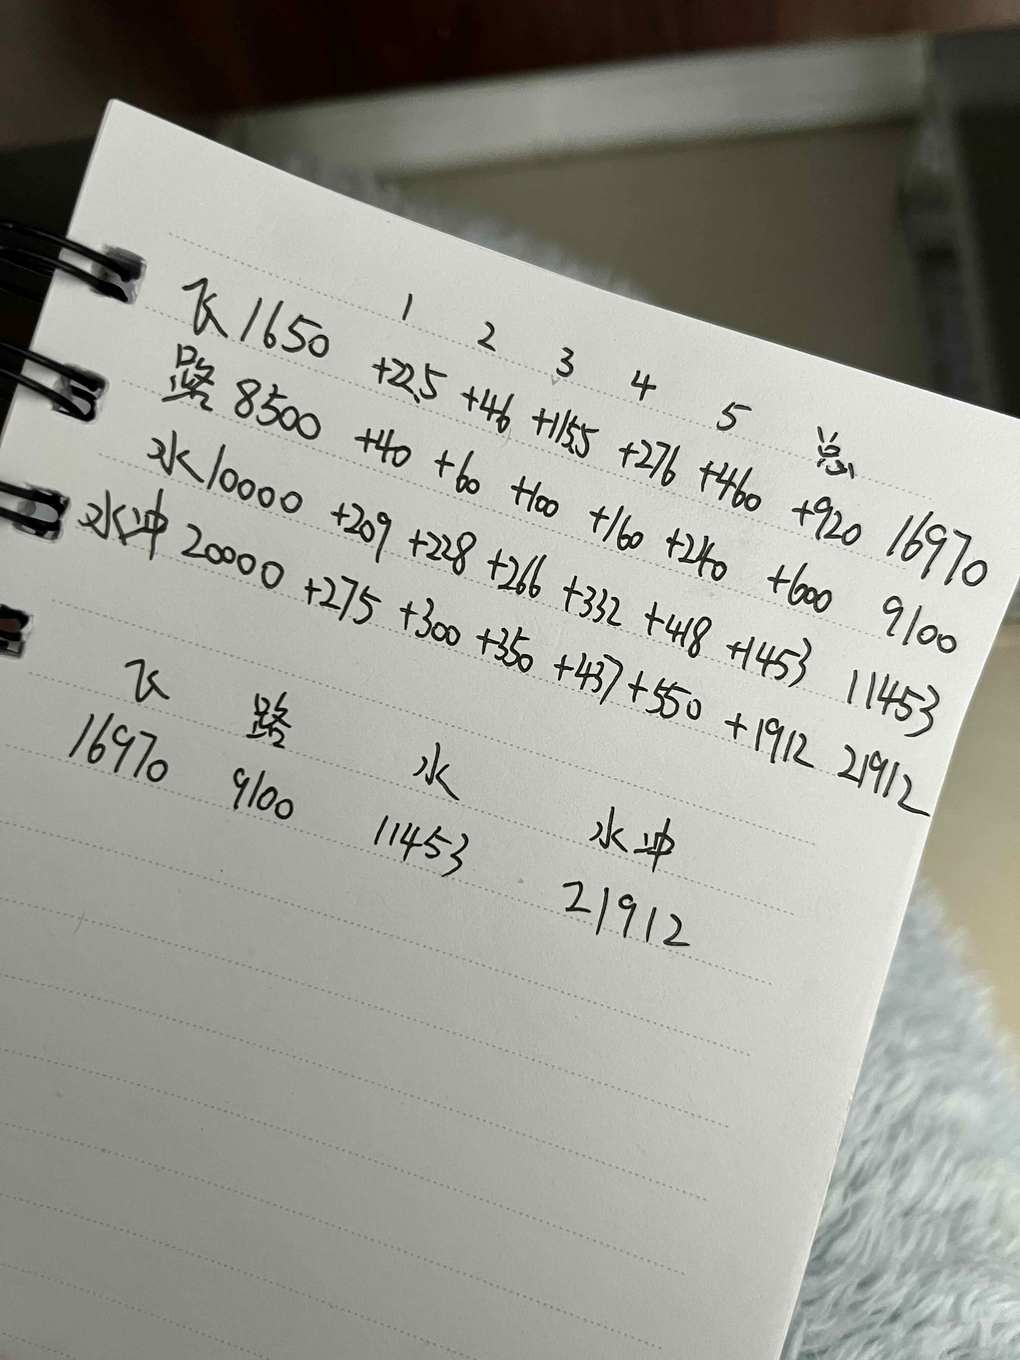 1 2 3 4 5 总
飞 1650 +22.5 +46 +115.5 +276 +460 +920 16970
路 8500 +40 +60 +100 +160 +240 +600 9100
水 10000 +209 +228 +266 +332 +418 +1453 11453
水冲 20000 +275 +300 +350 +437 +550 +1912 21912
飞 路 水 水冲
16970 9100 11453 21912